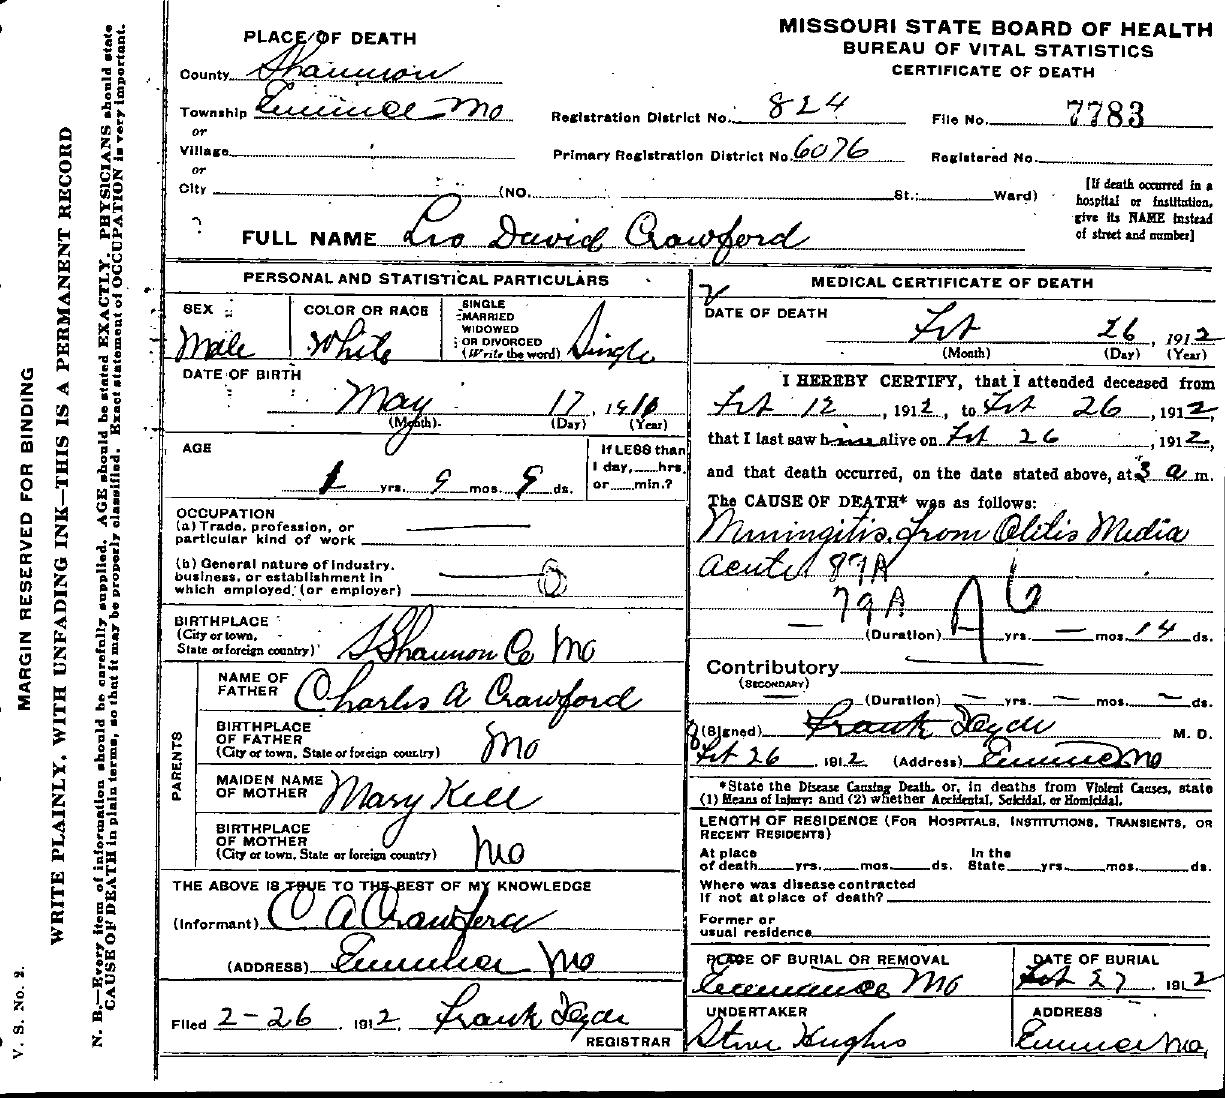 MISSOURI STATE BOARD OF HEALTH
BUREAU OF VITAL STATISTICS
CERTIFICATE OF DEATH
PLACE OF DEATH
County Shannon
Township Eminence Mo
or
Village
or
City (NO. St.; Ward)
Registration District No. 824
File No. 7783
Primary Registration District No. 6076
Registered No.
[If death occurred in a
hospital or institution,
give its NAME instead
of street and number]
FULL NAME Leo David Crawford
PERSONAL AND STATISTICAL PARTICULARS
SEX
Male
COLOR OR RACE
White
SINGLE
MARRIED
WIDOWED
OR DIVORCED
(Write the word)
Single
DATE OF BIRTH
May 17, 1910
(Month) (Day) (Year)
AGE
1 yrs. 9 mos. 9 ds.
If LESS than
1 day, hrs.
or min.?
OCCUPATION
(a) Trade, profession, or
particular kind of work
(b) General nature of industry,
business, or establishment in
which employed (or employer)
BIRTHPLACE
(City or town,
State or foreign country)
Shannon Co Mo
PARENTS
NAME OF
FATHER
Charles A Crawford
BIRTHPLACE
OF FATHER
(City or town, State or foreign country)
Mo
MAIDEN NAME
OF MOTHER
Mary Kell
BIRTHPLACE
OF MOTHER
(City or town, State or foreign country)
Mo
THE ABOVE IS TRUE TO THE BEST OF MY KNOWLEDGE
(Informant) C A Crawford
(ADDRESS) Eminence Mo
Filed 2-26, 1912, Frank
REGISTRAR
MEDICAL CERTIFICATE OF DEATH
DATE OF DEATH
Feb 26, 1912
(Month) (Day) (Year)
I HEREBY CERTIFY, that I attended deceased from
Feb 12, 1912, to Feb 26, 1912,
that I last saw him alive on Feb 26, 1912,
and that death occurred, on the date stated above, at 3 a m.
The CAUSE OF DEATH* was as follows:
Meningitis from Otitis Media
Acute 89A
79A
(Duration) yrs. — mos. 14 ds.
Contributory
(SECONDARY)
(Duration) — yrs. — mos. — ds.
(Signed) Frank M. D.
Feb 26, 1912 (Address) Eminence Mo
*State the Disease Causing Death, or, in deaths from Violent Causes, state
(1) Means of Injury; and (2) whether Accidental, Suicidal, or Homicidal.
LENGTH OF RESIDENCE (FOR HOSPITALS, INSTITUTIONS, TRANSIENTS, OR
RECENT RESIDENTS)
At place
of death yrs. mos. ds.
In the
State yrs. mos. ds.
Where was disease contracted
if not at place of death?
Former or
usual residence
PLACE OF BURIAL OR REMOVAL
Eminence Mo
DATE OF BURIAL
Feb 27 1912
UNDERTAKER
Steve Hughes
ADDRESS
Eminence Mo,
MARGIN RESERVED FOR BINDING
WRITE PLAINLY, WITH UNFADING INK—THIS IS A PERMANENT RECORD
N. B.—Every item of information should be carefully supplied. AGE should be stated EXACTLY. PHYSICIANS should state
CAUSE OF DEATH in plain terms, so that it may be properly classified. Exact statement of OCCUPATION is very important.
V. S. No. 2.